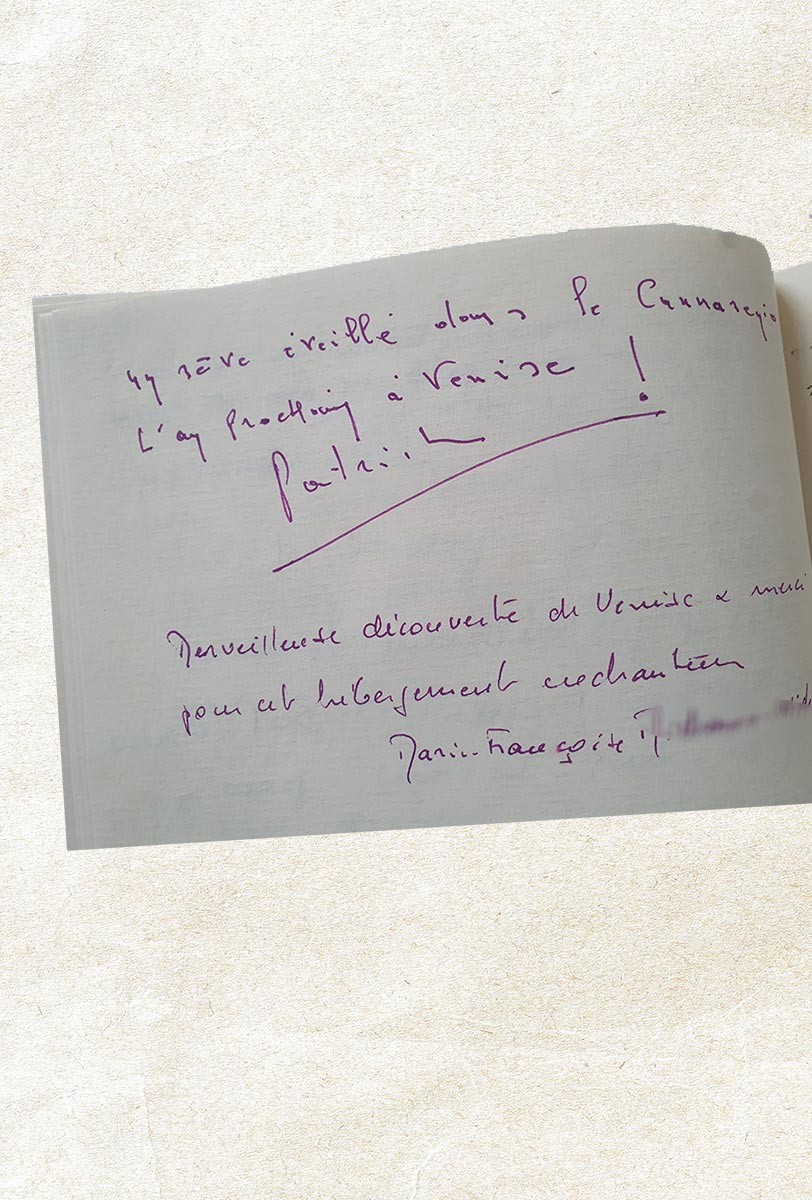 Un rêve éveillé dans le Cannaregio
L'an prochain à Venise !
Patrick
Merveilleuse découverte de Venise & merci
pour cet hébergement enchanteur
Marie-Françoise M.